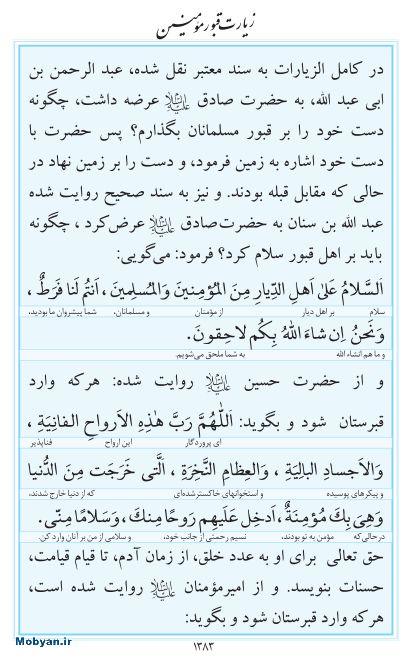 زیارت قبور مؤمنین
در کامل الزیارات به سند معتبر نقل شده، عبد الرحمن بن
ابی عبد الله، به حضرت صادق علیه‌السلام عرضه داشت، چگونه
دست خود را بر قبور مسلمانان بگذارم؟ پس حضرت با
دست خود اشاره به زمین فرمود، و دست را بر زمین نهاد در
حالی که مقابل قبله بودند. و نیز به سند صحیح روایت شده
عبد الله بن سنان به حضرت صادق علیه‌السلام عرض کرد ، چگونه
باید بر اهل قبور سلام کرد؟ فرمود: می‌گویی:
اَلسَّلامُ عَلیٰ اَهلِ الدِّیارِ مِنَ المُؤمِنینَ وَالمُسلِمینَ ، اَنتُم لَنا فَرَطٌ ،
سلام بر اهل دیار از مؤمنان و مسلمانان، شما پیشروان ما بودید،
وَنَحنُ اِن شاءَ اللهُ بِکُم لاحِقونَ.
و ما هم انشاء الله به شما ملحق می‌شویم.
و از حضرت حسین علیه‌السلام روایت شده: هرکه وارد
قبرستان شود و بگوید: اَللّٰهُمَّ رَبَّ هٰذِهِ الاَرواحِ الفانِیَةِ ،
ای پروردگار این ارواح فناپذیر
وَالاَجسادِ البالِیَةِ ، وَالعِظامِ النَّخِرَةِ ، اَلَّتی خَرَجَت مِنَ الدُّنیا
و پیکرهای پوسیده و استخوانهای خاکستر شده‌ای که از دنیا خارج شدند،
وَهِیَ بِكَ مُؤمِنَةٌ، اَدخِل عَلَیهِم رَوحًا مِنكَ، وَسَلامًا مِنّی.
درحالی‌که مؤمن به تو بودند، نسیم رحمتی از جانب خود، و سلامی از من بر آنان وارد کن.
حق تعالی برای او به عدد خلق، از زمان آدم، تا قیام قیامت،
حسنات بنویسد. و از امیرمؤمنان علیه‌السلام روایت شده است،
هرکه وارد قبرستان شود و بگوید:
Mobyan.ir
۱۳۸۳